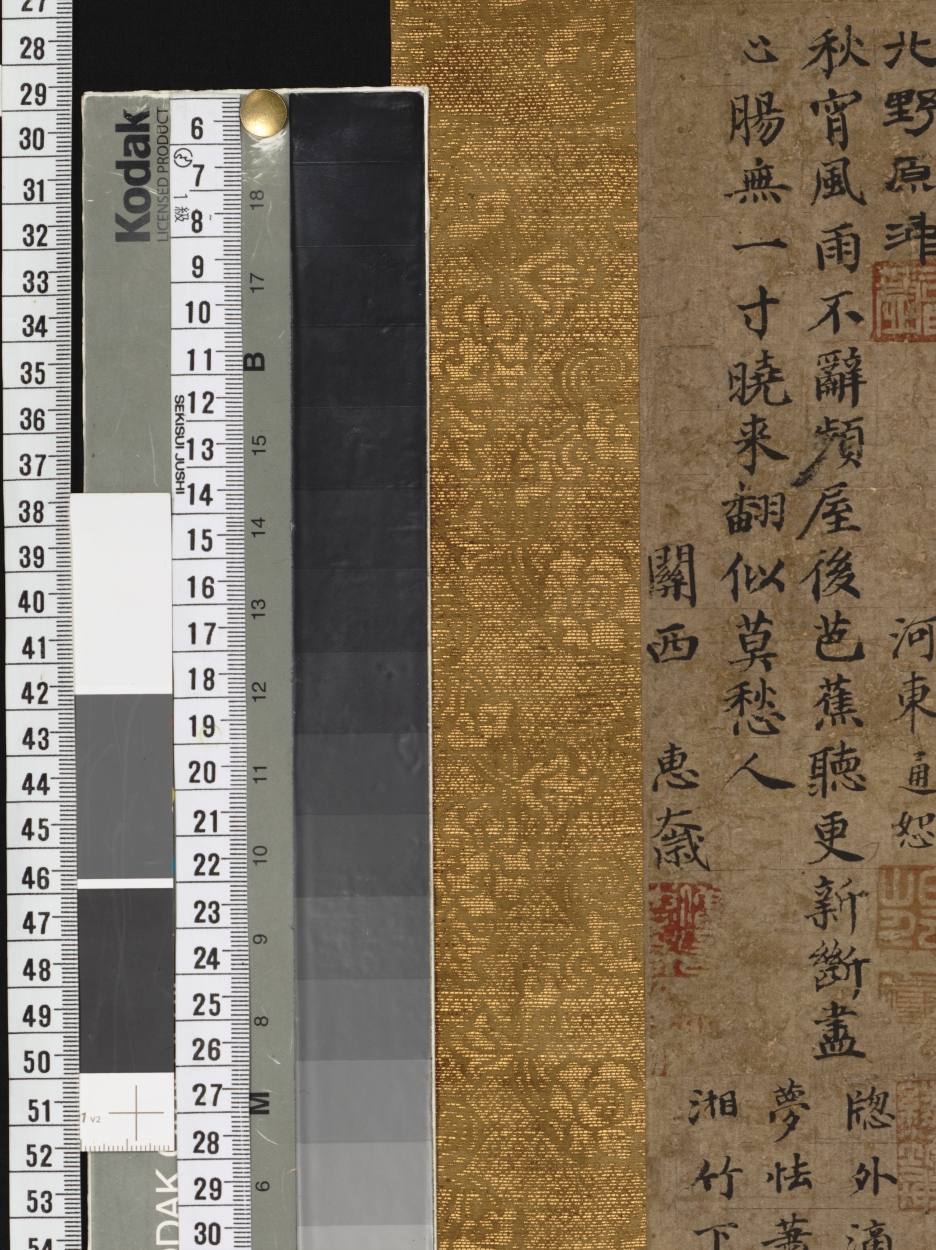 北野原沖
河東通恕
秋宵風雨不辭頻屋後芭蕉聽更新斷盡
心腸無一寸曉来翻似莫愁人
關西 惠奯
牕外滴
夢怯葉
湘竹下
Kodak
LICENSED PRODUCT
KODAK
SEKISUI JUSHI
1級
27
28
29
30
31
32
33
34
35
36
37
38
39
40
41
42
43
44
45
46
47
48
49
50
51
52
53
54
6
7
8
9
10
11
12
13
14
15
16
17
18
19
20
21
22
23
24
25
26
27
28
29
30
18
17
B
15
14
13
12
11
10
9
8
M
6
V2